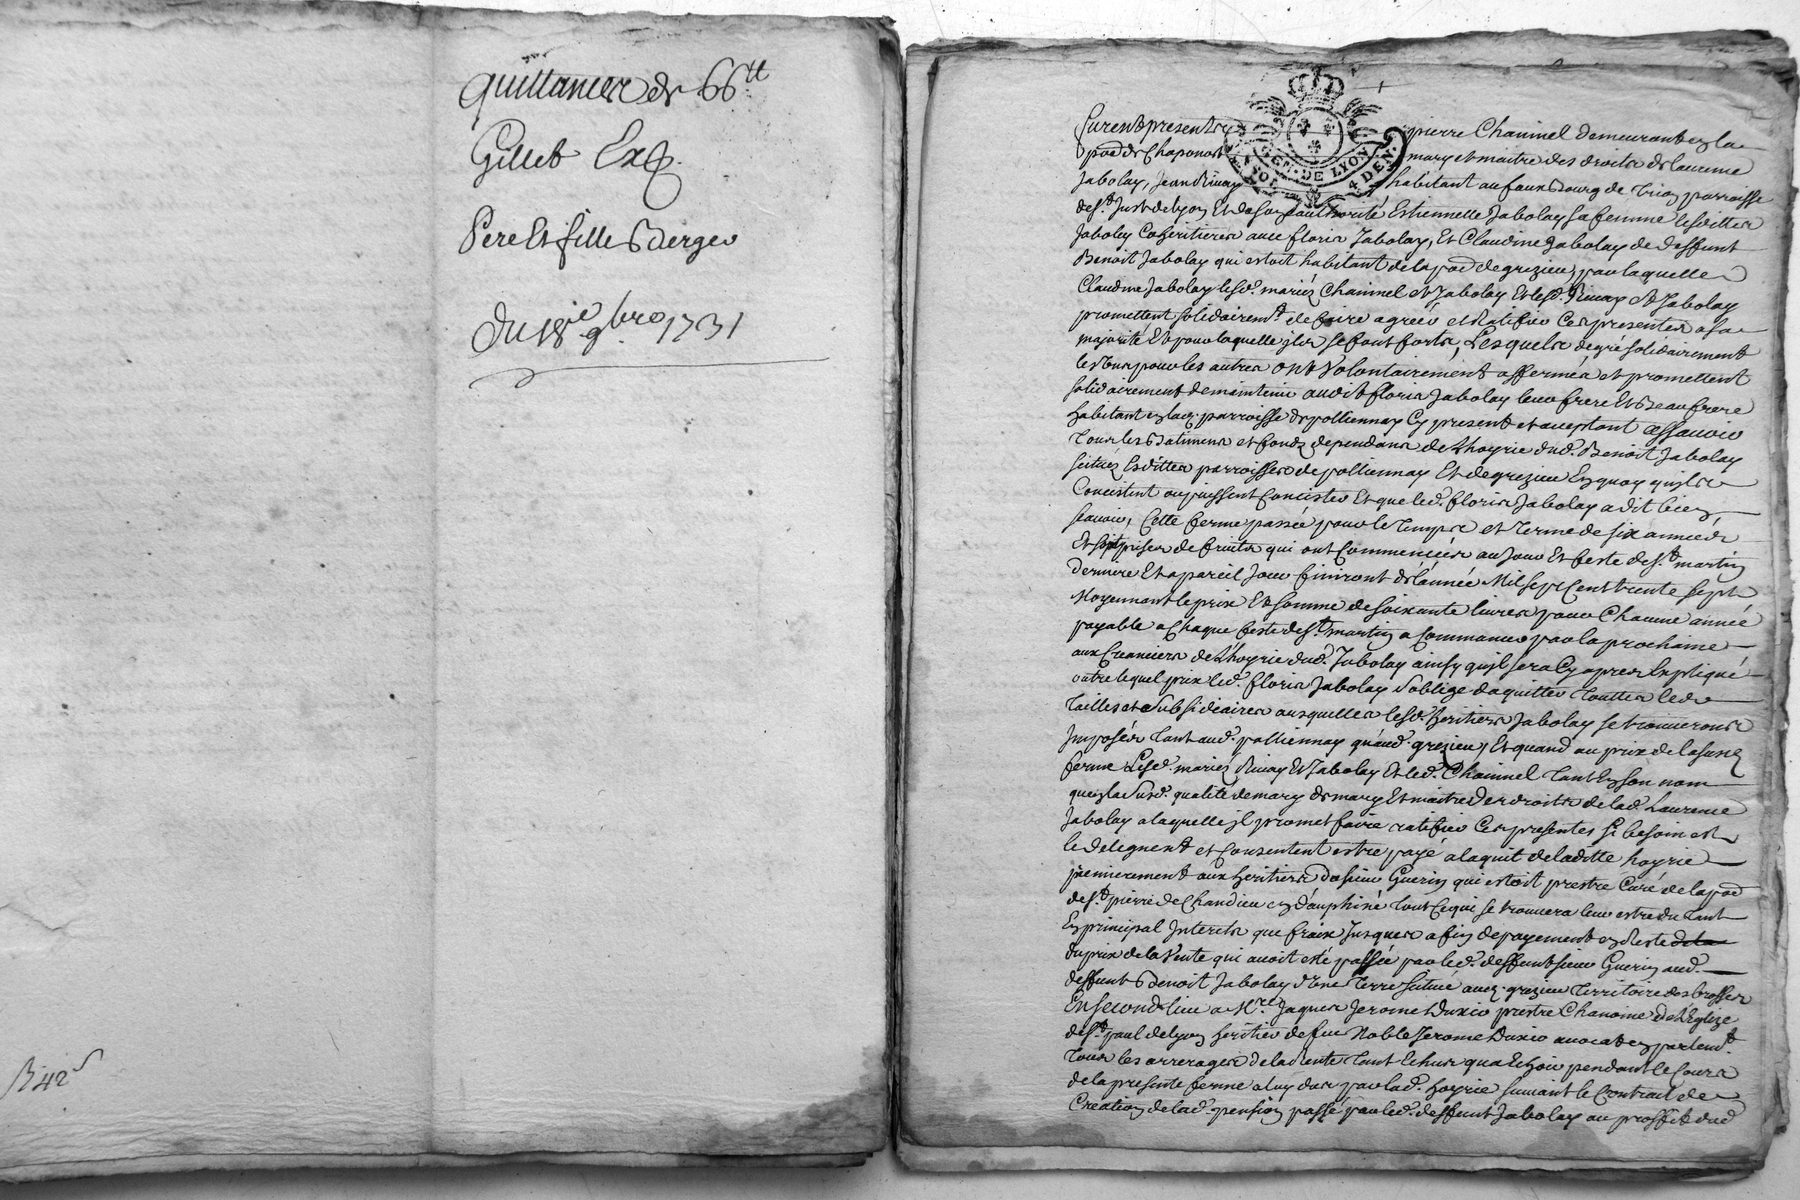 quittance de 66tt
Gillet Exp.
Pere Et fille Berger
du 18e 9bre 1731
R 42s
GEN. DE LYON
4 DEN.
furent presents pierre Chainnel demeurant en la
pssе de Chaponost mary et maitre des droits de laurence
Jabolay, Jean Rivay habitant au fauxbourg de trion parroisse
de st. Just de lyon Et de son authorité Estiennette Jabolay sa femme lesdittes
Jaboley Coheritieres avec floris Jabolay, Et Claudine Jabolay de deffunt
Benoit Jabolay qui estoit habitant de la psse de grezieu, pour laquelle
Claudine Jabolay lesd. mariez Chainnel et Jabolay Et lesd. Rivay Et Jabolay
promettent solidairemt. de faire agreer et Ratifier Ces presentes a sa
majorité Et pour laquelle ils se font forts, Lesquels de gré solidairement
les uns pour les autres ont Volontairement affermés et promettent
solidairement de maintenir audit floris Jabolay leur frere Et Beaufrere
habitant en lad. parroisse de pollionnay Cy present et acceptant assavoir
Tous les Batiments et fonds dependans de L'hoyrie dud. Benoit Jabolay
scituéz Esdittes parroisses de pollionnay Et de grezieu En quoy qu'ils
Consistent ou puissent Consister Et que led. floris Jabolay a dit bien
scavoir, Cette ferme passée pour le temps et terme de six années
Et six prises de fruits qui ont Commencées au Jour Et feste de st. martin
derniere Et a pareil Jour finiront de l'année Mil sept Cent trente sept
Moyennant le prix Et somme de soixante livres pour Chacune année
payable a Chaque feste de st. martin a Commancer par la prochaine
aux Creanciers de L'hoyrie dud. Jabolay ainsy qu'il sera Cy apres Expliqué
outre lequel prix led. floris Jabolay s'oblige d'aquitter touttes les
tailles et subsidiaires ausquelles lesd. heritiers Jabolay se trouveront
Imposés tant aud. pollionnay qu'aud. grezieu, Et quand au prix de la susd.
ferme Lesd. mariez Rivay Et Jabolay Et led. Chainnel tant En son nom
qu'en la susd. qualité de mary de mary Et maitre des droits de lad. Laurence
Jabolay a laquelle il promet faire ratifier Ces presentes si besoin est
le deleguent et Consentent estre payé a l'aquit de laditte hoyrie
premierement aux heritiers du sieur Guerin qui estoit prestre Curé de la psse
de st. pierre de Chandieu en dauphiné tout Ce qui se trouvera leur estre du tant
En principal Interets que fraix Jusques a fin de payement en Reste de la
du prix de la Vente qui avoit esté passée par led. deffunt sieur Guerin aud.
deffunt Benoit Jabolay d'Une terre scituée aud. grezieu territoire des brosses
En second lieu a Mre. Jaques Jerome Duxio prestre Chanoine de L'Eglize
de st. paul de lyon heritier de feu Noble Jerome Duxio avocat en parlemt.
tous les arrerages de la Rente tant Echus qu'a Echoir pendant le Cours
de la presente ferme a luy dus par lad. hoyrie suivant le Contrat de
Creation de lad. pension passé par led. deffunt Jabolay au proffit dud